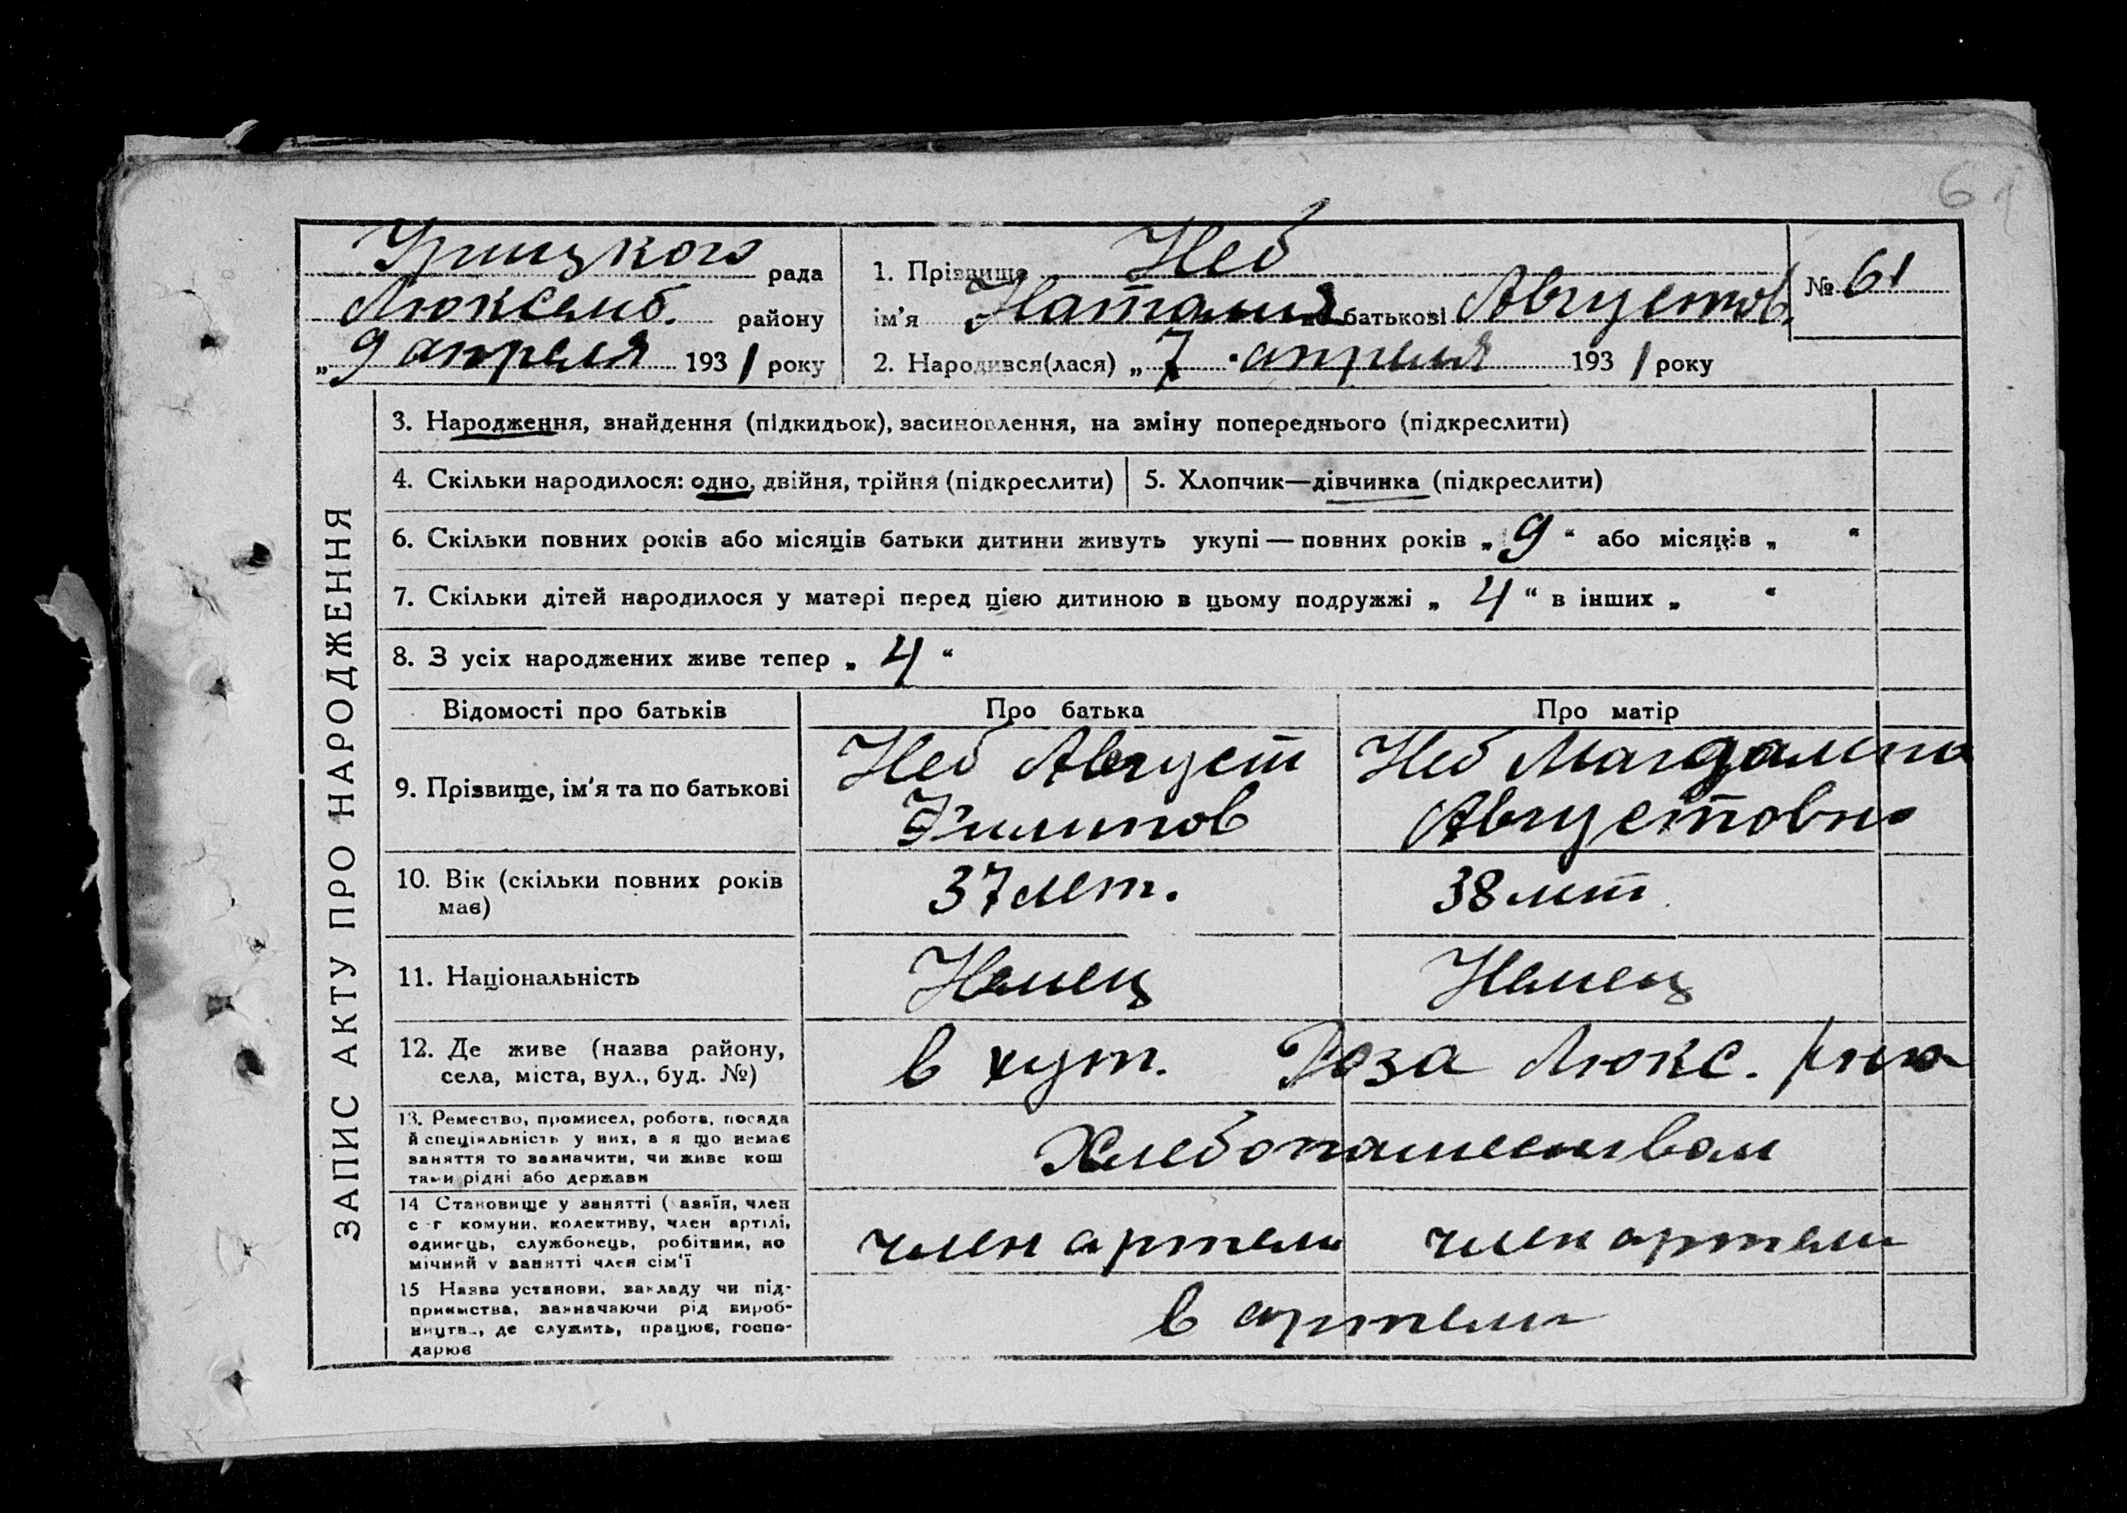 61
Урицкого рада
Люксемб. району
„ 9 апреля 1931 року
1. Прізвище Неб
ім'я Наталия по батькові Августов.
2. Народився(лася) „ 7 " апреля 1931 року
№ 61
ЗАПИС АКТУ ПРО НАРОДЖЕННЯ
3. Народження, знайдення (підкидьок), засиновлення, на зміну попереднього (підкреслити)
4. Скільки народилося: одно, двійня, трійня (підкреслити) 5. Хлопчик—дівчинка (підкреслити)
6. Скільки повних років або місяців батьки дитини живуть укупі — повних років „ 9 “ або місяців „ “
7. Скільки дітей народилося у матері перед цією дитиною в цьому подружжі „ 4 “ в інших „ “
8. З усіх народжених живе тепер „ 4 “
Відомості про батьків Про батька Про матір
9. Прізвище, ім'я та по батькові
Неб Август
Филипов
Неб Магдалина
Августовна
10. Вік (скільки повних років
має)
37 лет.
38 лет
11. Національність Немец Немец
12. Де живе (назва району,
села, міста, вул., буд. №)
в хут. Роза Люкс. р-на
13. Ремество, промисел, робота, посада
й спеціяльність у них, а я що немає
заняття то зазначити, чи живе кош
тами рідні або держави
Хлебопашеством
14 Становище у занятті ( азяїн, член
с-г комуни, колективу, член артілі,
одинець, службовець, робітник, по
мічний у занятті член сім'ї
член артели член артели
15 Назва установи, закладу чи під-
приємства, зазначаючи рід вироб-
ництв., де служить, працює, госпо-
дарює
в артели